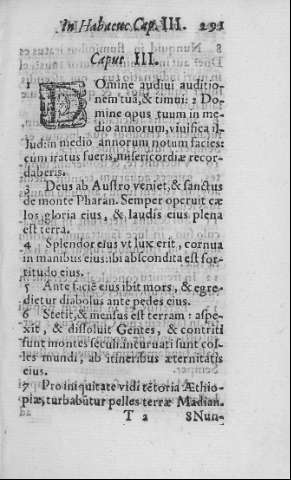 In Habacuc Cap. III. 291
Caput III.
1 DOmine audiui auditio-
nem tuã, & timui: 2 Do-
mine opus tuum in me-
dio annorum, viuifica il-
lud: in medio annorum notum facies:
cùm iratus fueris, misericordiæ recor-
daberis.
3 Deus ab Austro veniet, & sanctus
de monte Pharan. Semper operuit cæ
los gloria eius, & laudis eius plena
est terra.
4 Splendor eius vt lux erit, cornua
in manibus eius: ibi abscondita est for-
titudo eius.
5 Ante faciẽ eius ibit mors, & egre-
dietur diabolus ante pedes eius.
6 Stetit, & mensus est terram: aspe-
xit, & dissoluit Gentes, & contriti
sunt montes seculi: incuruati sunt col-
les mundi, ab itineribus æternitatis
eius.
7 Pro iniquitate vidi tẽtoria Æthio-
piæ, turbabũtur pelles terræ Madian.
T 2 8Nun-